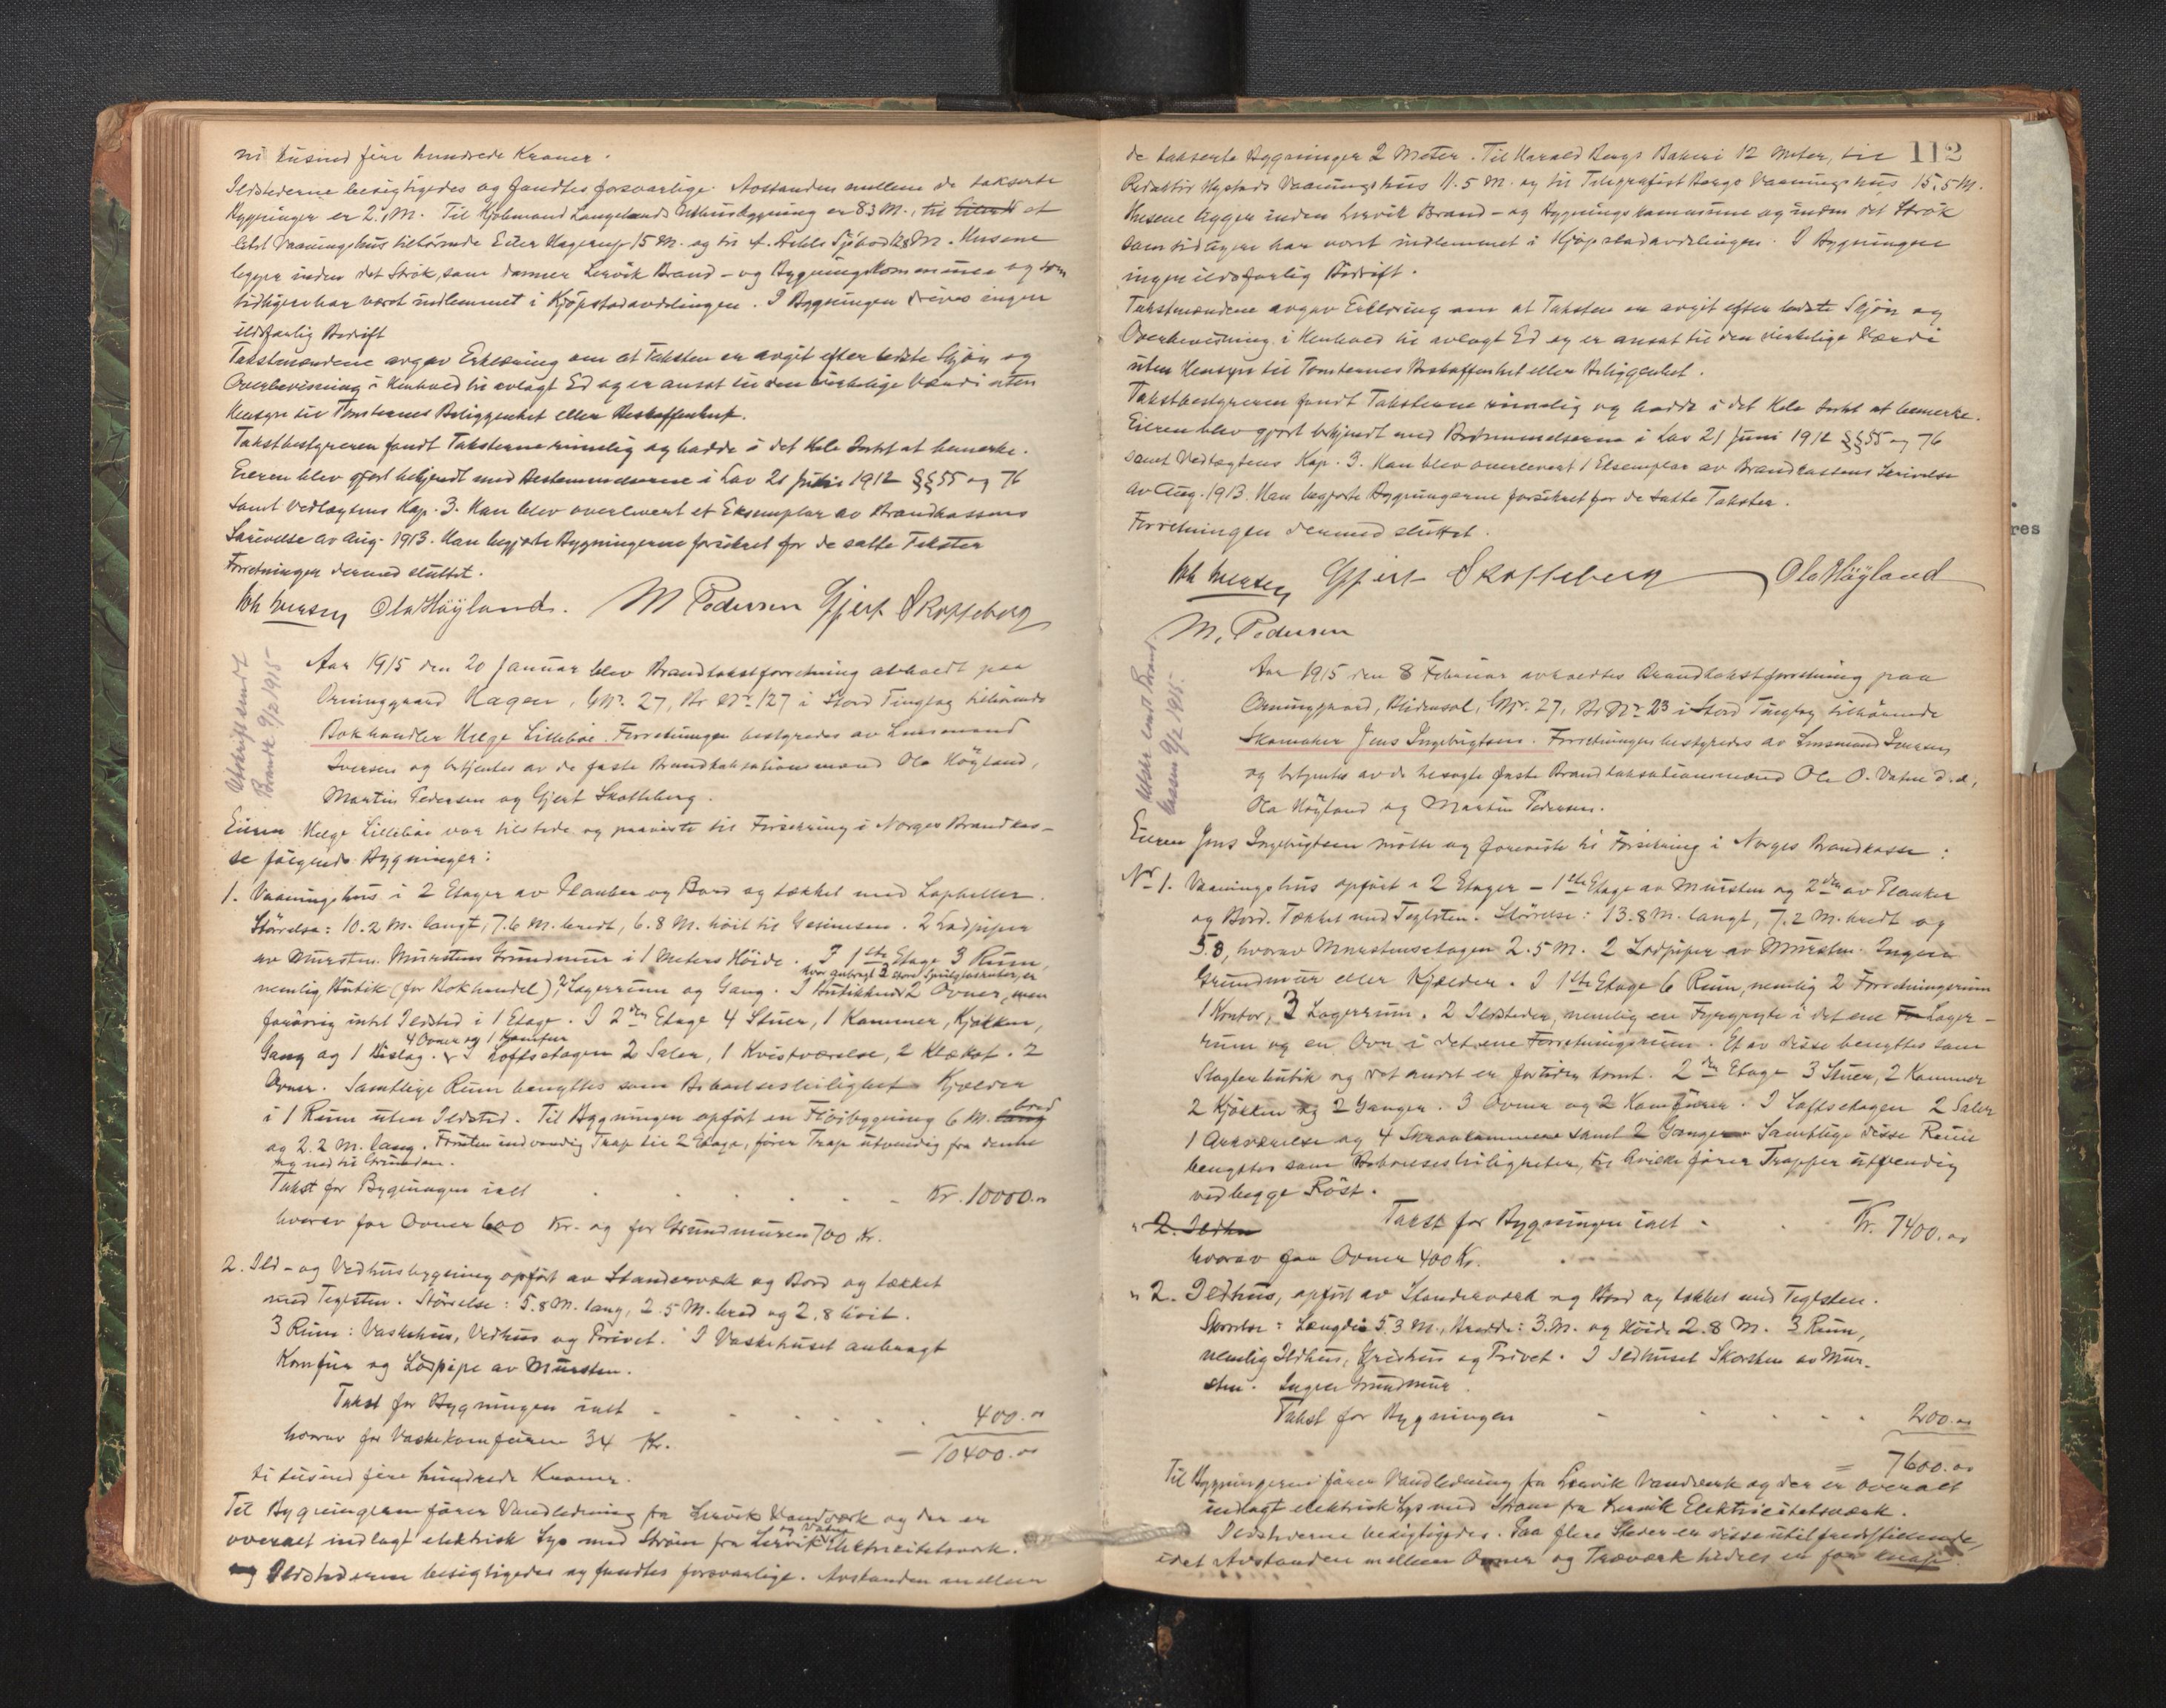 ni tusind fire hundrede Kroner.
Ildstederne besigtigedes og fandtes forsvarlige. Avstanden mellem de takserte
Bygninger er 2.1 M. Til Kjøbmand Langelands Uthusbygning er 8.3 M., til et
litet Vaaningshus tilhörende Eiler Hagerup 15 M. og til Sjöbod 12.8 M. Husene
ligger inden det Strök, som danner Lervik Brand- og Bygningskommune og som
tidligere har været indlemmet i Kjöpstadavdelingen. I Bygningen drives ingen
ildsfarlig Bedrift
Takstmændene avgav Erklæring om at Taksten er avgit efter bedste Skjön og
Overbevisning i Henhold til avlagt Ed og er ansat til den virkelige Værdi uten
Hensyn til Tomternes Beliggenhet eller Beskaffenhet.
Takstbestyreren fandt Taksterne rimelig og hadde i det Hele Intet at bemerke.
Eieren blev gjort bekjendt med Bestemmelserne i Lov 21 Juni 1912 §§ 55 og 76
samt Vedtægtens Kap. 3. Han blev overlevert et Eksemplar av Brandkassens
Skrivelse av Aug. 1913. Han begjærte Bygningerne forsikret for de satte Takster
Forretningen dermed sluttet.
Joh Iversen Ola Höyland. M Pedersen Gjert Skotteberg
Utskrift sendt
Brandk 9/2 1915
Aar 1915 den 20 Januar blev Brandtakstforretning avholdt paa
Örninggaard Hagen, GNr. 27, Br Nr. 127 i Stord Tinglag tilhörende
Bokhandler Helge Lilleböe. Forretningen bestyredes av Lensmand
Iversen og betjentes av de faste Brandtakstationsmænd Ola Höyland,
Martin Pedersen og Gjert Skotteberg.
Eieren Helge Lilleböe var tilstede og paaviste til Forsikring i Norges Brandkas-
se fölgende Bygninger:
1. Vaaningshus i 2 Etager av Planker og Bord og tækket med Lapheller.
Störrelse: 10.2 M. langt, 7.6 M. bredt, 6.8 M. höit til Gesimsen. 2 Lodpiper
av Mursten. Murstens Grundmur i 1 Meters Höide. I 1ste Etage 3 Rum,
hvor anbragt 2 store Speilglasruter, er
nemlig Butik (for Bokhandel), 2 Lagerrum og Gang. I Butikkene 2 Ovner, men
forövrig intet Ildsted i 1 Etage. I 2den Etage 4 Stuer, 1 Kammer, Kjökken,
4 Ovner og 1 Komfur
Gang og 1 Bislag. I Loftsetagen 2 Saler, 1 Kvistværelse, 2 Klæskot. 2
Ovner. Samtlige Rum benyttes som Beboelsesleilighet. Kjælder
i 1 Rum uten Ildsted. Til Bygningen opfört en Flöibygning 6 M. lang bred
og 2.2 M. lang. Foruten indvendig Trap til 2 Etage, förer Trap utvendig fra denne
og ned til Grunden.
Takst for Bygningen ialt Kr. 10000.00
hvorav for Ovner 600 Kr. og for Grundmuren 700 Kr.
2. Ild- og Vedhusbygning opfört av Standerværk og Bord og tækket
med Teglsten. Störrelse: 5.8 M. lang, 2.5 M. bred og 2.8 höit.
3 Rum: Vaskehus, Vedhus og Privet. I Vaskehuset anbragt
Komfur og Lodpipe av Mursten.
Takst for Bygningen ialt 400.00
hvorav for Vaskekomfuren 34 Kr. 10400.00
ti tusind fire hundrede Kroner.
Til Bygningerne förer Vandledning fra Lervik Vandværk og der er
overalt indlagt elektrisk Lys med Ström fra Lervik Elektricitetsværk.
og Ildstederne besigtigedes og fandtes forsvarlige. Avstanden mellem
112
de takserte Bygninger 2 Meter. Til Harald Bergs Bakeri 12 Meter, til
Redaktör Nystads Vaaningshus 11.5 M. og til Telegrafist Borgs Vaaningshus 15.5 M.
Husene ligger inden Lervik Brand- og Bygningskommune og inden det Strök
som tidligere har været indlemmet i Kjöpstadavdelingen. I Bygningen
ingen ildsfarlig Bedrift.
Takstmændene avgav Erklæring om at Taksten er avgit efter bedste Skjön og
Overbevisning i Henhold til avlagt Ed og er ansat til den virkelige Værdi
uten Hensyn til Tomternes Beskaffenhet eller Beliggenhet.
Takstbestyreren fandt Taksterne rimelig og hadde i det Hele Intet at bemerke.
Eieren blev gjort bekjendt med Bestemmelserne i Lov 21 Juni 1912 §§ 55 og 76
samt Vedtægtens Kap. 3. Han blev overlevert 1 Eksemplar av Brandkassens Skrivelse
av Aug. 1913. Han begjærte Bygningerne forsikret for de satte Takster.
Forretningen dermed sluttet.
Joh Iversen Gjert Skotteberg Ola Höyland
M. Pedersen
Utskr sendt Brand
kassen 9/2 1915.
Aar 1915 den 8 Februar avholdtes Brandtakstforretning paa
Örninggaard, Blidensol, GNr. 27, Br Nr. 23 i Stord Tinglag tilhörende
Skomaker Jens Ingebrigtsen. Forretningen bestyredes av Lensmand Iversen
og betjentes av de besagte faste Brandtaksationsmænd Ole O. Vatne d.æ.,
Ola Höyland og Martin Pedersen.
Eieren Jens Ingebrigtsen mötte og foreviste til Forsikring i Norges Brandkasse:
Nr. 1. Vaaningshus opfört i 2 Etager – 1ste Etage av Mursten og 2den av Planker
og Bord. Tækket med Teglsten. Störrelse: 13.8 M. langt, 7.2 M. bredt og
5.8, hvorav Murstensetagen 2.5 M. 2 Lodpiper av Mursten. Ingen
Grundmur eller Kjælder. I 1ste Etage 6 Rum, nemlig 2 Forretningsrum
1 Kontor, 3 Lagerrum. 2 Ildsteder, nemlig en Fyrgryte i det ene Lager-
rum og en Ovn i det ene Forretningsrum. Et av disse benyttes som
Slagterbutik og det andet er fortiden tomt. 2den Etage 3 Stuer, 2 Kammer
2 Kjökken og 2 Ganger. 3 Ovner og 2 Komfurer. I Loftsetagen 2 Saler
1 Arkværelse og 4 Skraakammere samt 2 Ganger. Samtlige disse Rum
benyttes som Beboelsesleiligheter, til hvilke förer Trapper utvendig
ved begge Röst.
" 2. Ildhu Takst for Bygningen ialt Kr. 7400.00
hvorav for Ovner 400 Kr.
" 2. Ildhus, opfört av Standerværk og Bord og tækket med Teglsten.
Længde 5.3 M., Bredde: 3. M. og Höide 2.8 M. 3 Rum,
nemlig Ildhus, Grishus og Privet. I Ildhuset Skorsten av Mur-
sten. Ingen Grundmur.
Takst for Bygningen 200.00
= 7600.00
Til Bygningerne förer Vandledning fra Lervik Vandverk og der er overalt
indlagt elektrisk Lys med Ström fra Lervik Elektricitetsværk.
Ildstederne besigtigedes. Paa flere Steder er disse utilfredsstillende,
idet Avstanden mellem Ovner og Træværk tildels er for knap.
res